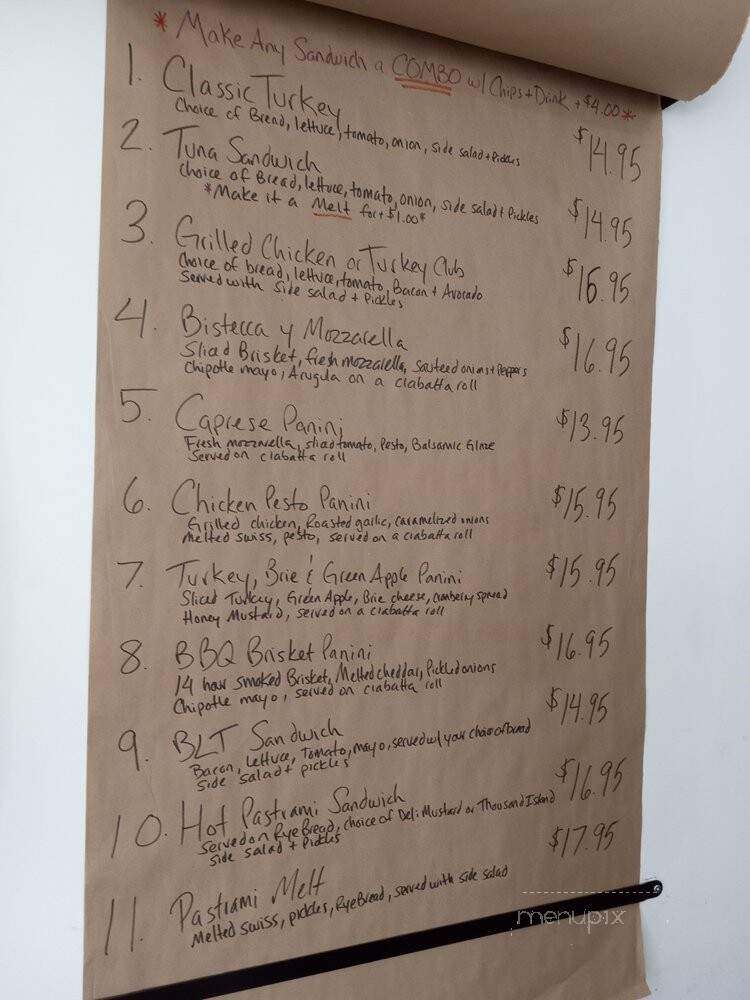 * Make Any Sandwich a COMBO w/ Chips + Drink + $4.00 *
1. Classic Turkey $14.95
Choice of Bread, lettuce, tomato, onion, side salad + Pickles
2. Tuna Sandwich $14.95
choice of Bread, lettuce, tomato, onion, side salad + Pickles
*Make it a Melt for + $1.00*
3. Grilled Chicken or Turkey Club $16.95
Choice of bread, lettuce, tomato, Bacon + Avocado
Served with side salad + Pickles
4. Bistecca y Mozzarella $16.95
Sliced Brisket, fresh mozzarella, sauteed onions + Peppers
Chipotle mayo, Arugula on a ciabatta roll
5. Caprese Panini $13.95
Fresh mozzarella, sliced tomato, Pesto, Balsamic Glaze
Served on ciabatta roll
6. Chicken Pesto Panini $15.95
Grilled chicken, Roasted garlic, caramelized onions
Melted swiss, pesto, served on a ciabatta roll
7. Turkey, Brie & Green Apple Panini $15.95
Sliced Turkey, Green Apple, Brie cheese, cranberry spread
Honey Mustard, served on a ciabatta roll
8. BBQ Brisket Panini $16.95
14 hour smoked Brisket, Melted cheddar, Pickled onions
Chipotle mayo, served on ciabatta roll
9. BLT Sandwich $14.95
Bacon, Lettuce, Tomato, mayo, served w/ your choice of bread
side salad + pickles
10. Hot Pastrami Sandwich $16.95
Served on Rye Bread, choice of Deli Mustard or Thousand Island
side salad + Pickles
11. Pastrami Melt $17.95
Melted swiss, pickles, Rye Bread, served with side salad
menupix